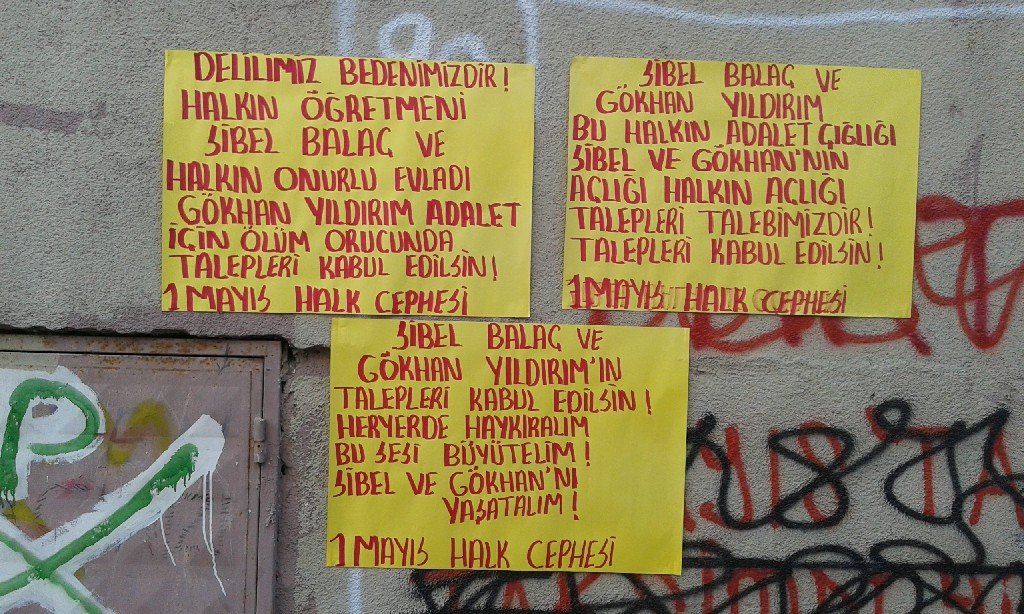 DELİLİMİZ BEDENİMİZDİR!
HALKIN ÖĞRETMENİ
SİBEL BALAÇ VE
HALKIN ONURLU EVLADI
GÖKHAN YILDIRIM ADALET
İÇİN ÖLÜM ORUCUNDA
TALEPLERİ KABUL EDİLSİN!
1 MAYIS HALK CEPHESİ
SİBEL BALAÇ VE
GÖKHAN YILDIRIM
BU HALKIN ADALET ÇIĞLIĞI
SİBEL VE GÖKHAN'NIN
AÇLIĞI HALKIN AÇLIĞI
TALEPLERİ TALEBİMİZDİR!
TALEPLERİ KABUL EDİLSİN!
1 MAYIS HALK CEPHESİ
SİBEL BALAÇ VE
GÖKHAN YILDIRIM'IN
TALEPLERİ KABUL EDİLSİN!
HERYERDE HAYKIRALIM
BU SESİ BÜYÜTELİM!
SİBEL VE GÖKHAN'NI
YAŞATALIM!
1 MAYIS HALK CEPHESİ
P